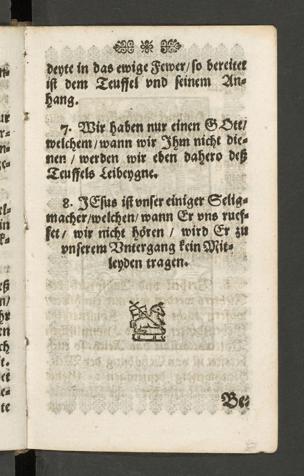 deyte in das ewige Fewer/so bereitet
ist dem Teuffel vnd seinem An-
hang.
7. Wir haben nur einen GOtt/
welchem/wann wir Ihm nicht die-
nen / werden wir eben dahero deß
Teuffels Leibeygne.
8. JEsus ist vnser einiger Selig-
macher/welchen/wann Er vns ruef-
fet / wir nicht hören / wird Er zu
vnserem Vntergang kein Mit-
leyden tragen.
Be-